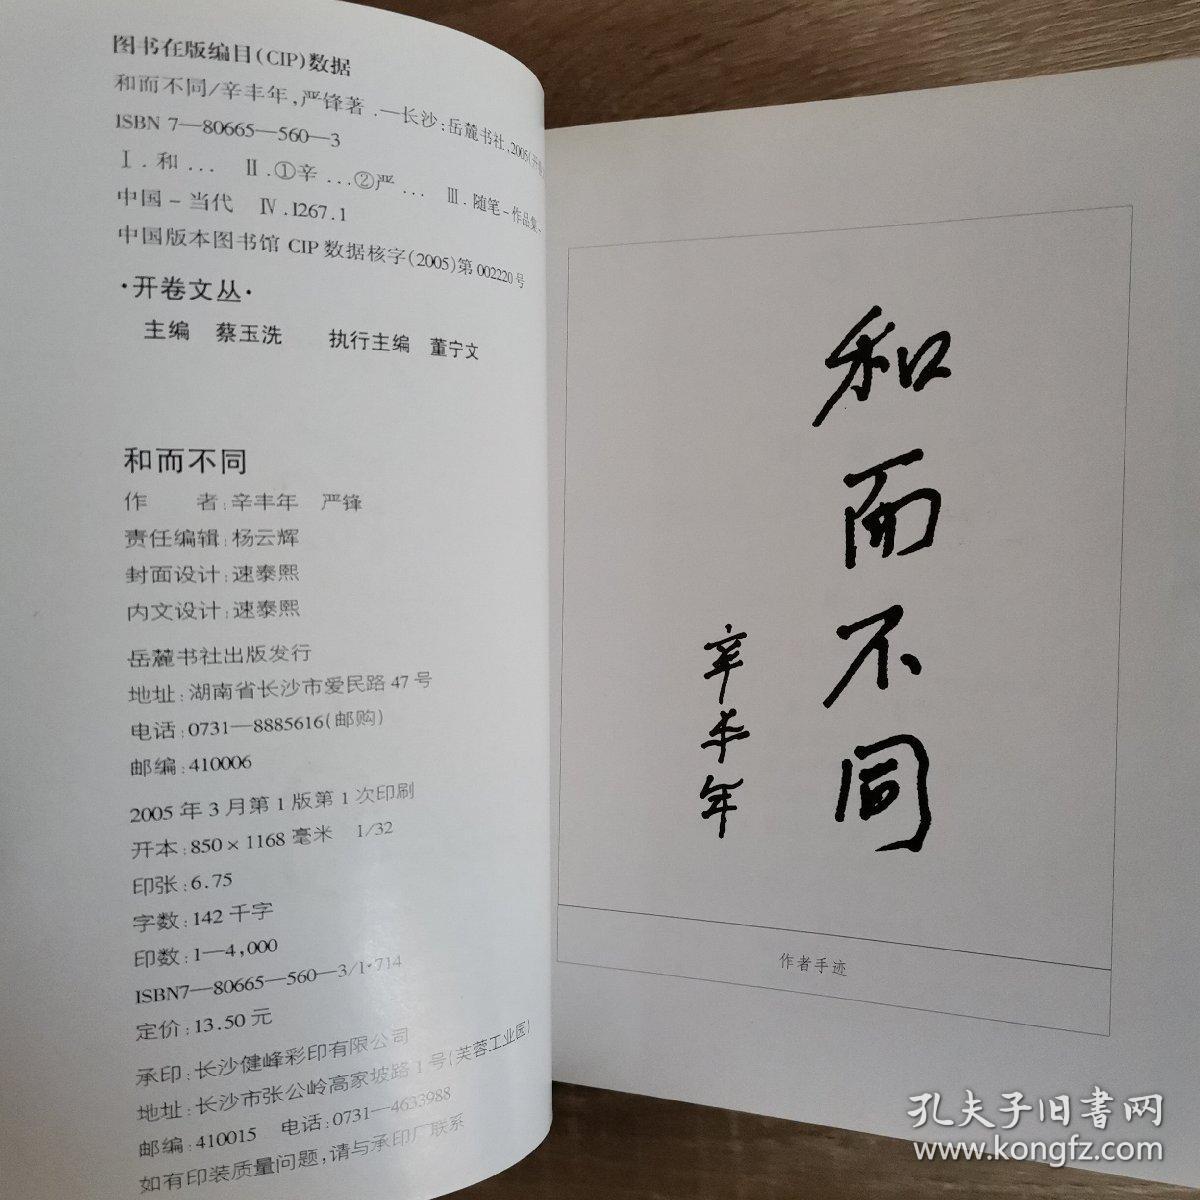 图书在版编目(CIP)数据
和而不同/辛丰年,严锋著.—长沙:岳麓书社,2005(开卷
ISBN 7—80665—560—3
Ⅰ.和… Ⅱ.①辛…②严… Ⅲ.随笔-作品集-
中国-当代 Ⅳ.I267.1
中国版本图书馆CIP数据核字(2005)第002220号
·开卷文丛·
主编 蔡玉洗 执行主编 董宁文
和而不同
作 者:辛丰年 严锋
责任编辑:杨云辉
封面设计:速泰熙
内文设计:速泰熙
岳麓书社出版发行
地址:湖南省长沙市爱民路47号
电话:0731—8885616(邮购)
邮编:410006
2005年3月第1版第1次印刷
开本:850×1168毫米 1/32
印张:6.75
字数:142千字
印数:1—4,000
ISBN7—80665—560—3/I·714
定价:13.50元
承印:长沙健峰彩印有限公司
地址:长沙市张公岭高家坡路1号(芙蓉工业园)
邮编:410015 电话:0731—4633988
如有印装质量问题,请与承印厂联系
和而不同
辛丰年
作者手迹
孔夫子旧書网
www.kongfz.com